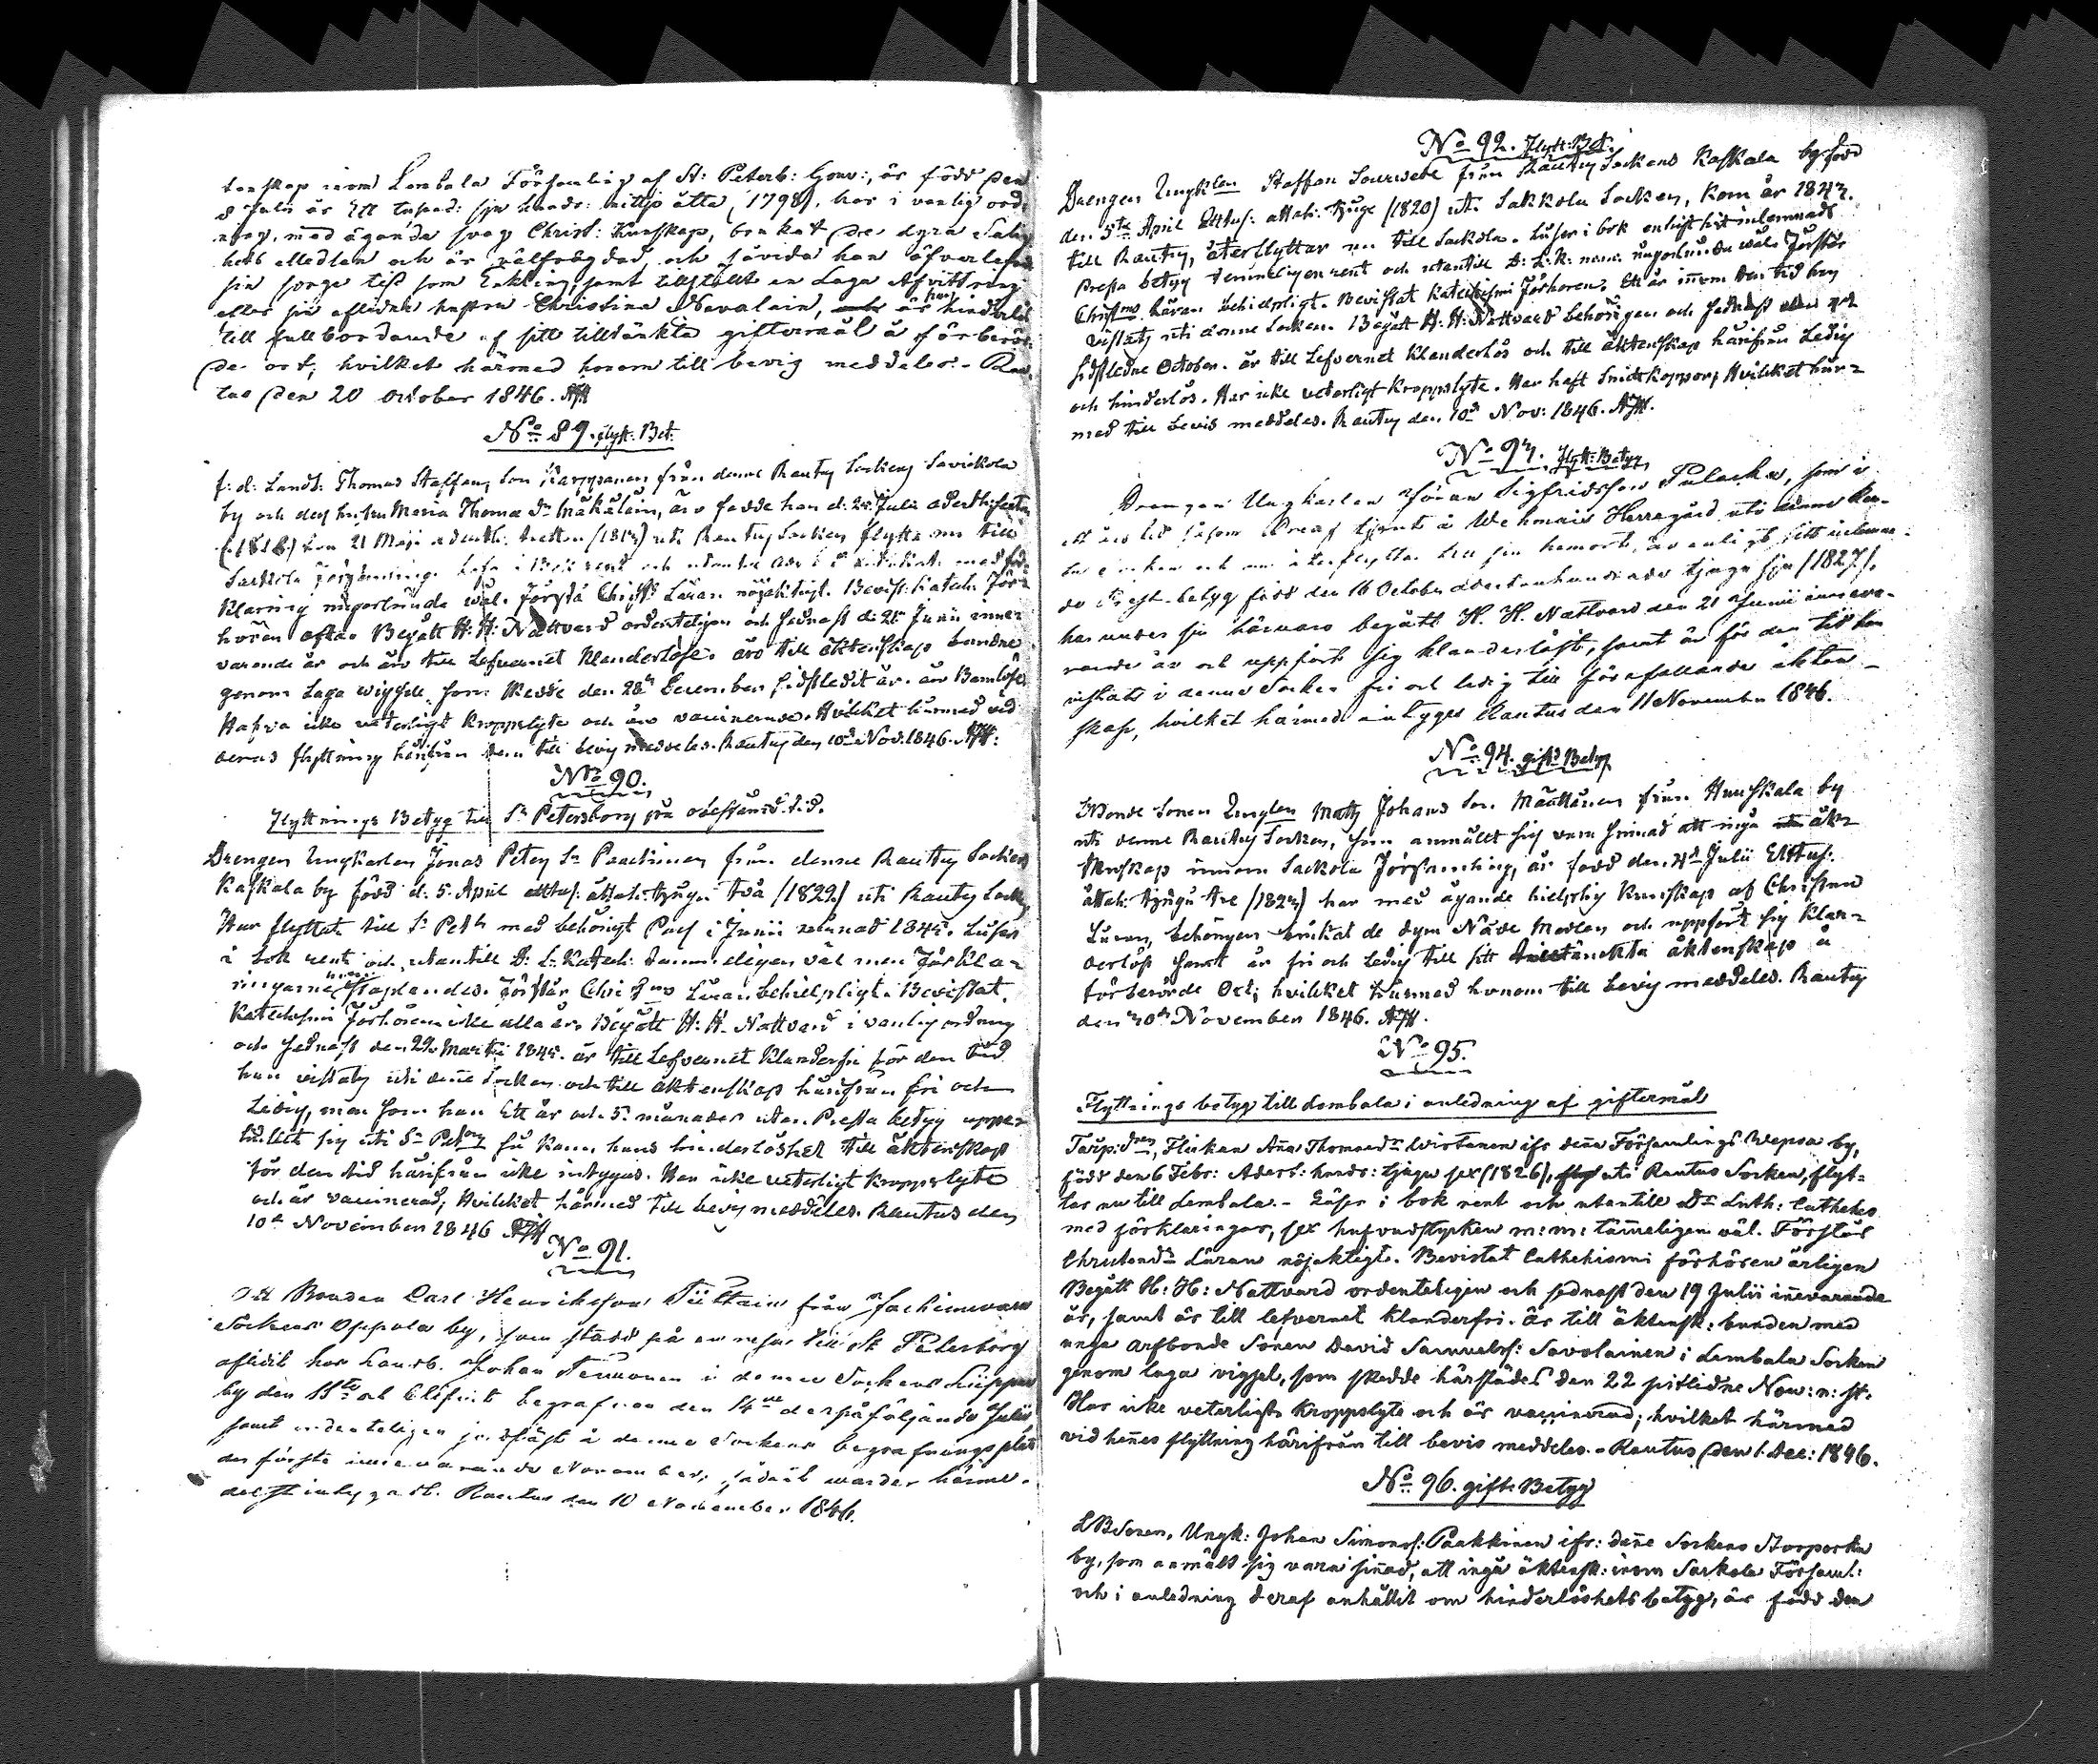 tenskap inom Lembala Församling af St: Peterb: Gouv:, är född den
8 Julii år Ett tusend: sju hundr: nittjo åtta (1798), har i vanlig ord-
ning, med äganda svag Christ: Kunskap, brukat de dyra Salig
hets medlen och är välfrägdad, och såvida han öfverlefvat
sin sorge tid som Enkling, samt tillställt en Laga Afvittring
efter sin aflidna hustru Christina Nevalain, är han hinderlös
till fullbordande af sitt tilltänkta giftermål å förberör-
de ort; hvilket härmed honom till bevig meddelas. - Rau-
tus den 20 October 1846.
No 89. flytt: Bet:
f: d: Landb: Thomas Staffans Son Karppanen från denna Rautus Sockens Savikola
by och dess hustru Maria Thomæ Dr Mäkäläin, äro födde han d: 25 Julii
(1816) hon 21 Maji adertth: tretton (1813) uti Rautus Socken flytta nu till
Sackola församling. Läsa i Bok rent och utantill med för-
klaring någorlunda wäl. Förstå Christ: Läran nöjaktigt. Bevist: Katech: För-
hören ofta. Begått H: H: Nattvard ordenteligen och sednast d: 21 Junii inne-
varande år och äro till Lefvernet Klanderlöse: äro till äktenskap bundne
genom Laga wigsel, som skedde den 28 December sidstledit år. är Barnlöse
Hafva icke veterligt Kroppslyte och äro vaccinerade. Hvilket härmed vid
deras flyttning härifrån dem till bevis meddeles. Rautus den 10de Nov. 1846.
No 90.
Flyttnings Betyg till St Petersborg på obestämd tid.
Drengen Ungkarlen Jonas Peters Sn Paackinen från denna Rautus Sockens
Kaskala by född d: 5 April ettus: åttah: tjugu två (1822) uti Rautus Sock:
Har flyttat till St Petb med behörigt Pass i Junii månad 1845. Läser
i bok rent och utantill D: L: Katech: tämmeligen väl men Förkla-
ringarne staplandes. Förstår Christna Läran behielpligt. Bevistat
Katechismi Förhören icke alla år. Begått H: H. Nattvard i vanlig ordning
och sednast den 29 Martii 1845. är till Lefvernet Klanderfri för den tid
han vistats uti denne Socken och till äktenskap härifrån fri och
Ledig, men som han Ett år och 5 månader utan Presta betyg uppe-
hållit sig uti St Petbrg så kan hans hinderlöshet till äktenskap
för den tid härifrån icke intygas. Har icke veterligt Kroppslyte
och är vaccinerad; Hvilket härmed till bevis meddeles. Rautus den
10de November 1846
No 91.
Att Bonden Carl Henriksson Tiittain från Jachimvara
Sockens Oppola by, som stadd på en resa till St Petersborg
aflidit hos Landb. Johan Temonen i denna Sockens Liippua
by den 11te och blifvit begrafven den 14de derpåföljande Julii
samt ordenteligen jordfäst å denna Sockens begrafningsplats
den förste innevarande November, sådant warder härme-
delst intygadt. Rautus den 10 November 1846.
No 92. Flytt: Bet.
Drengen Ungklen Staffan Sourwets från Rautus Sockens Kaskala by född
den 5te April Ettus: åttah: tjuge (1820) uti Sakkola Socken, kom år 1843
till Rautus, återflyttar nu till Sackola. Läser i bok enligt hit inlemnade
Presta betyg temmeligen rent och utantill D: L: K: någorlunda wäl. Förstår
Christna läran behielpligt. Bevistat Katechismi Förhören. Ett år inom den tid han
vistats uti denne Socken. Begått H: H: Nattvard behörigen och sednast
sidstledne October. är till Lefvernet Klanderlös och till äktenskap härifrån Ledig
och hinderlös. Har icke veterligt Kroppslyte. Har haft Smittkoppor; Hvilket här-
med till bevis meddeles. Rautus den 10de Nov: 1846.
No 93. Flytt: Betyg
Drengen Ungkarlen Göran Sigfridsson Pulacka, som i
ett års tid såsom Dreng tjent å Wehmais Herregård uti denne Soc-
ken och nu återflyttar till sin hemort, är enligt sitt inlemna-
de Prest-betyg född den 16 October adertonhundrade tjugu sju (1827),
har under sin härvaro begått H. H. Nattvard den 21 Junii inneva-
rande år och uppfört sig klanderlöst, samt är för den tid han
vistats i denna Socken fri och ledig till förefallande äkten-
skap, hvilket härmed intyges Rautus den 11 November 1846.
No 94. gift: Betyg
Bonde Sonen Unglen Matts Johans Son Määttänen från Huuskala by
uti denne Rautus Socken, som anmäldt sig vara sinnad att ingå äk-
tenskap innom Sackola Församling, är född den 4de Julii Ettus:
åttah: tjugu tre (1823) har med ägande hielplig Kunskap af Christna
Läran, behörigen brukat de dyra Nåde Medlen och uppfört sig klan-
derlöst samt är fri och Ledig till sitt tilltänckta äktenskap å
förberörde Ort; hvilket härmed honom till bevis meddeles. Rautus
den 30de November 1846.
No 95.
Flyttnings betyg till Lembala i anledning af giftermål
Flickan Anna Thomædr Wirtanen ifr denna Församlings Wepsa by,
född den 6 Febr: Adert: hundr: tjugu sex (1826), uti Rautus Socken, flyt-
tar nu till Lembala. - Läser i bok rent och utantill Dr Luth: Cathekes
med förklaringar, sex hufvudstycken m: m: tämeligen väl. Förstår
Christend: Läran nöjaktigt. Bevistat Cathekismi förhören årligen
Begått H: H: Nattvard ordenteligen och sednast den 19 Julii inevarande
år, samt är till lefvernet klanderfri. Är till äktensk: bunden med
unga arfbonde Sonen David Samuelss: Savolainen i Lembala Socken
genom laga vigsel, som skedde härstädes den 22 sistlidne Nov: n: st.
Har icke veterligt kroppslyte och är vaccinerad; hvilket härmed
vid henes flyttning härifrån till bevis meddeles. - Rautus den 1 Dec: 1846.
No 96. gift: Betyg
LBSonen, Ungk: Johan Simons: Paakkinen ifr: dene Sockens Storporkn
by, som anmält sig vara sinad, att ingå äktensk: inom Sackola Församl:
och i anledning deraf anhållit om hinderlöshets betyg, är född den